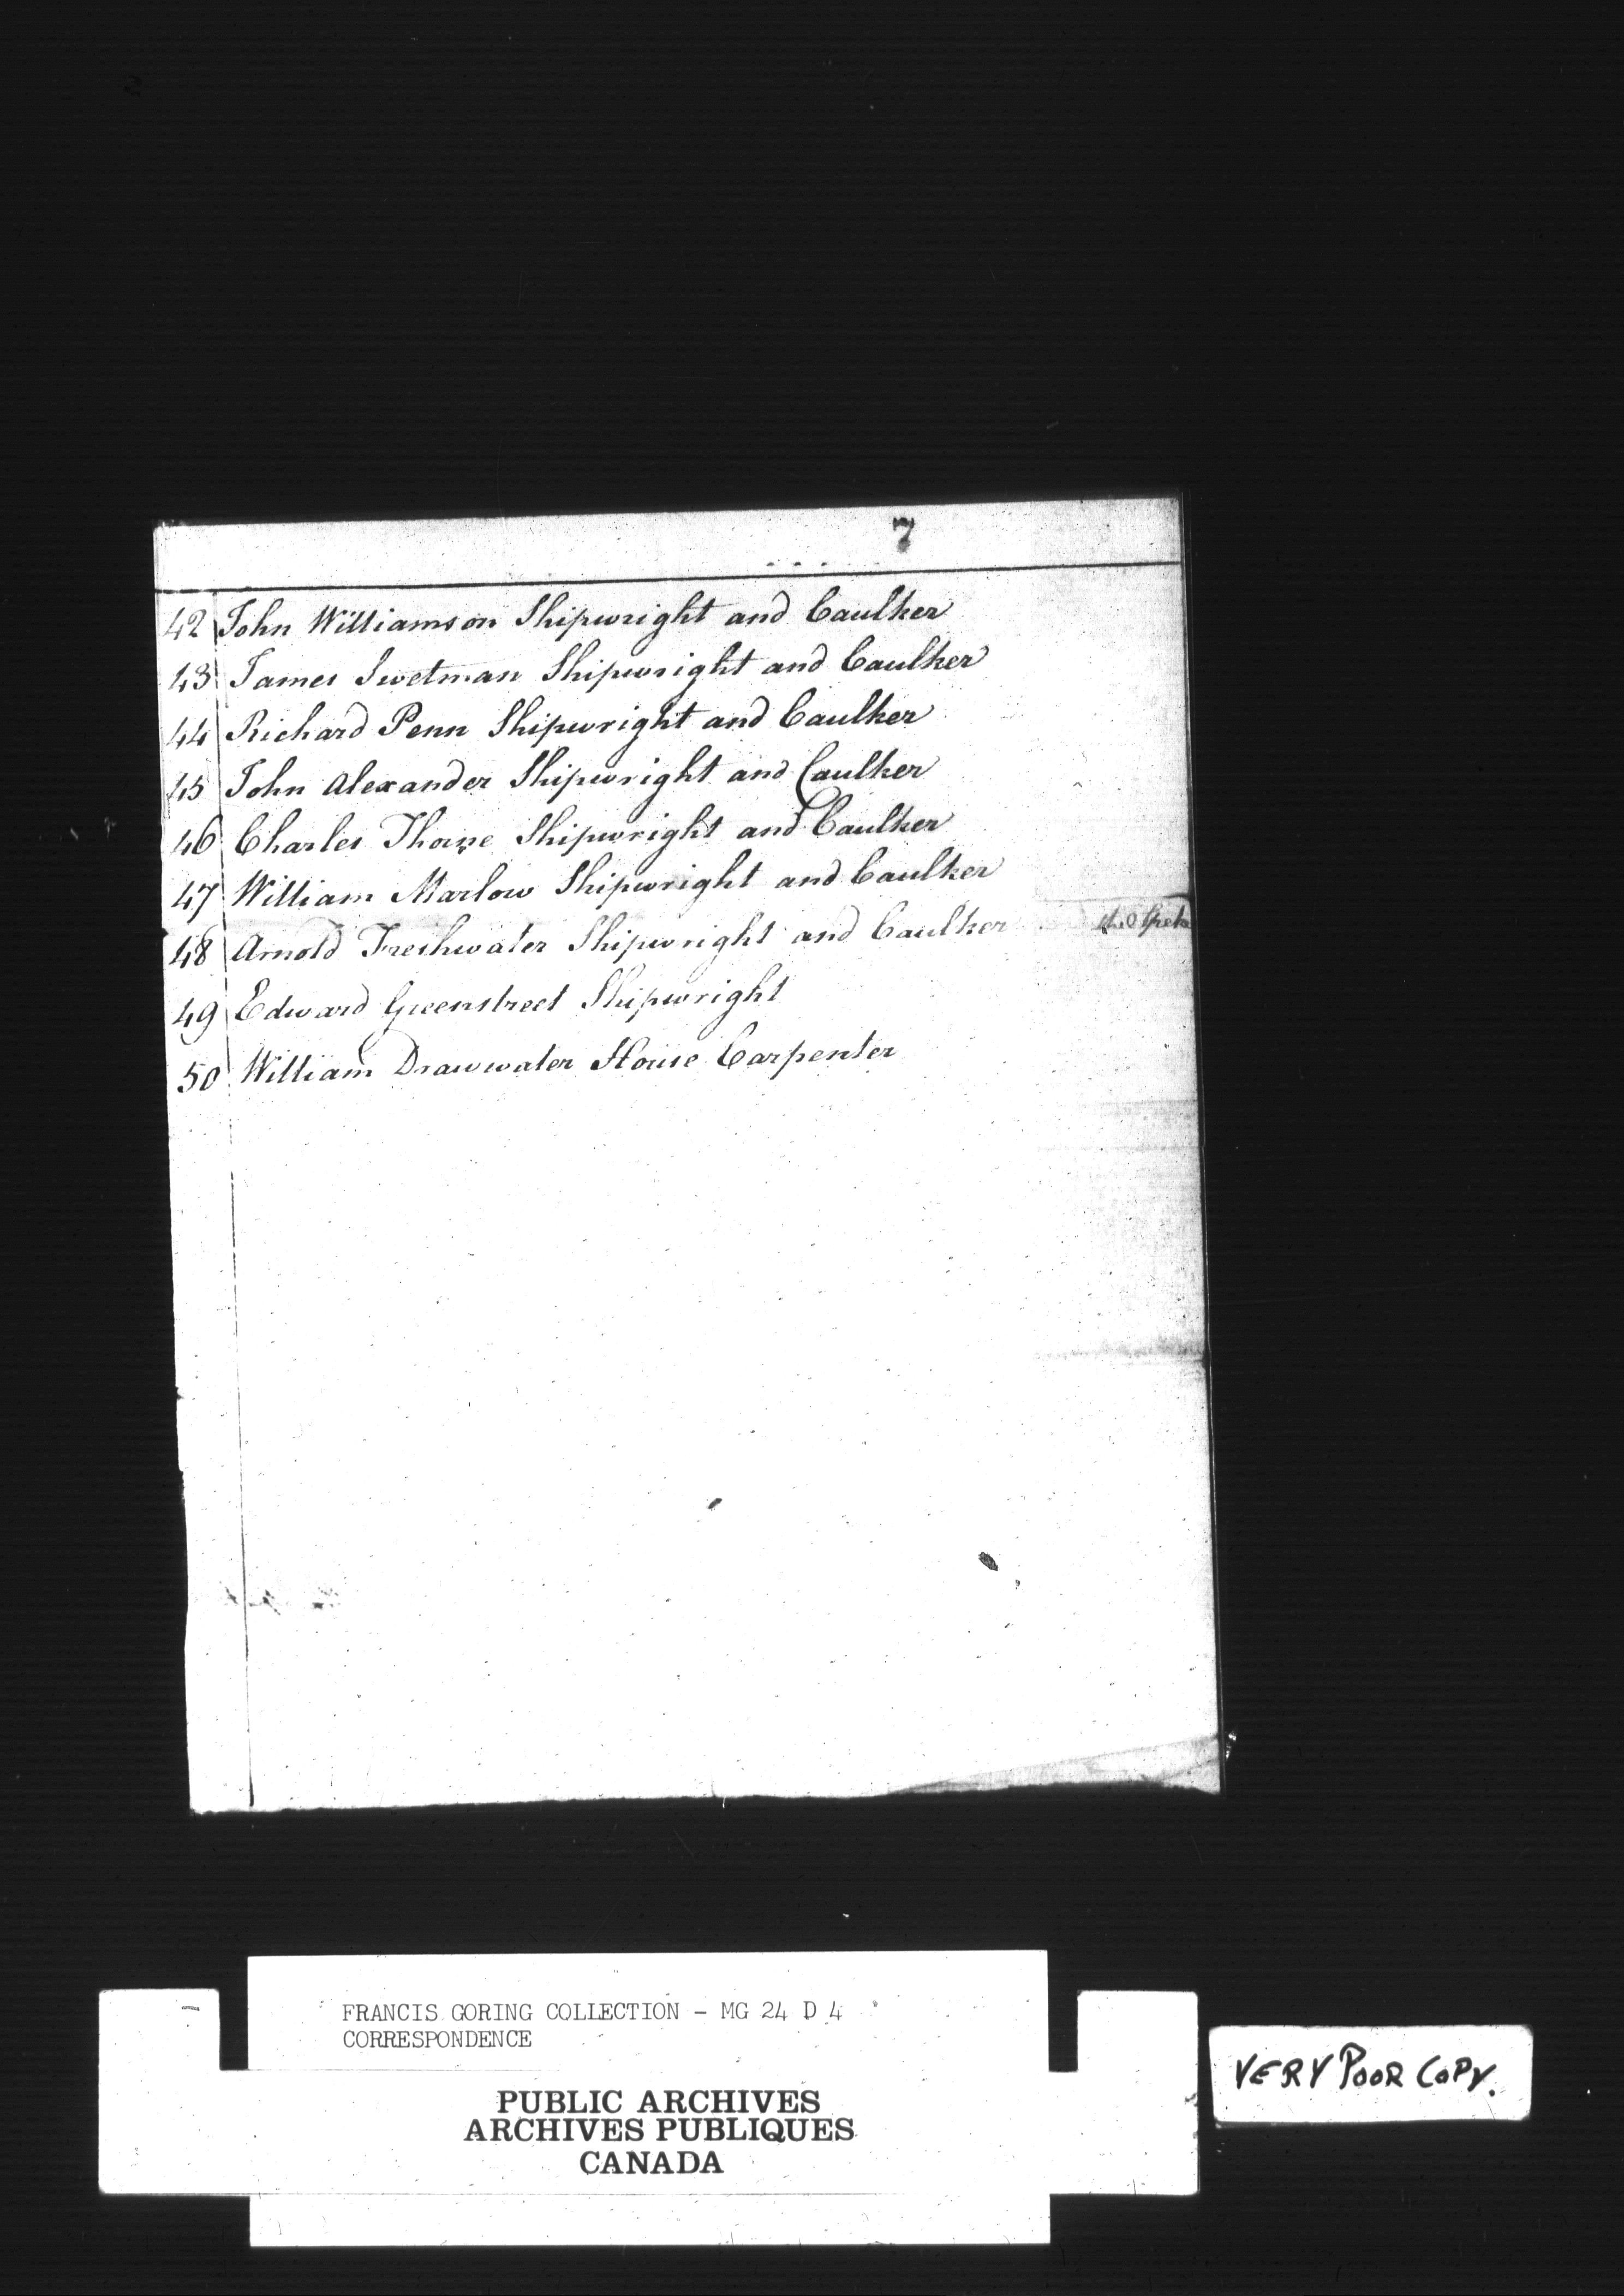 7
42 John Williamson Shipwright and Caulker
43 James Swetman Shipwright and Caulker
44 Richard Penn Shipwright and Caulker
45 John Alexander Shipwright and Caulker
46 Charles Shipwright and Caulker
47 William Marlow Shipwright and Caulker
48 Arnold Freshwater Shipwright and Caulker
49 Edward Greenstreet Shipwright
50 William Drawwater House Carpenter
FRANCIS GORING COLLECTION - MG 24 D 4
CORRESPONDENCE
PUBLIC ARCHIVES
ARCHIVES PUBLIQUES
CANADA
VERY POOR COPY.